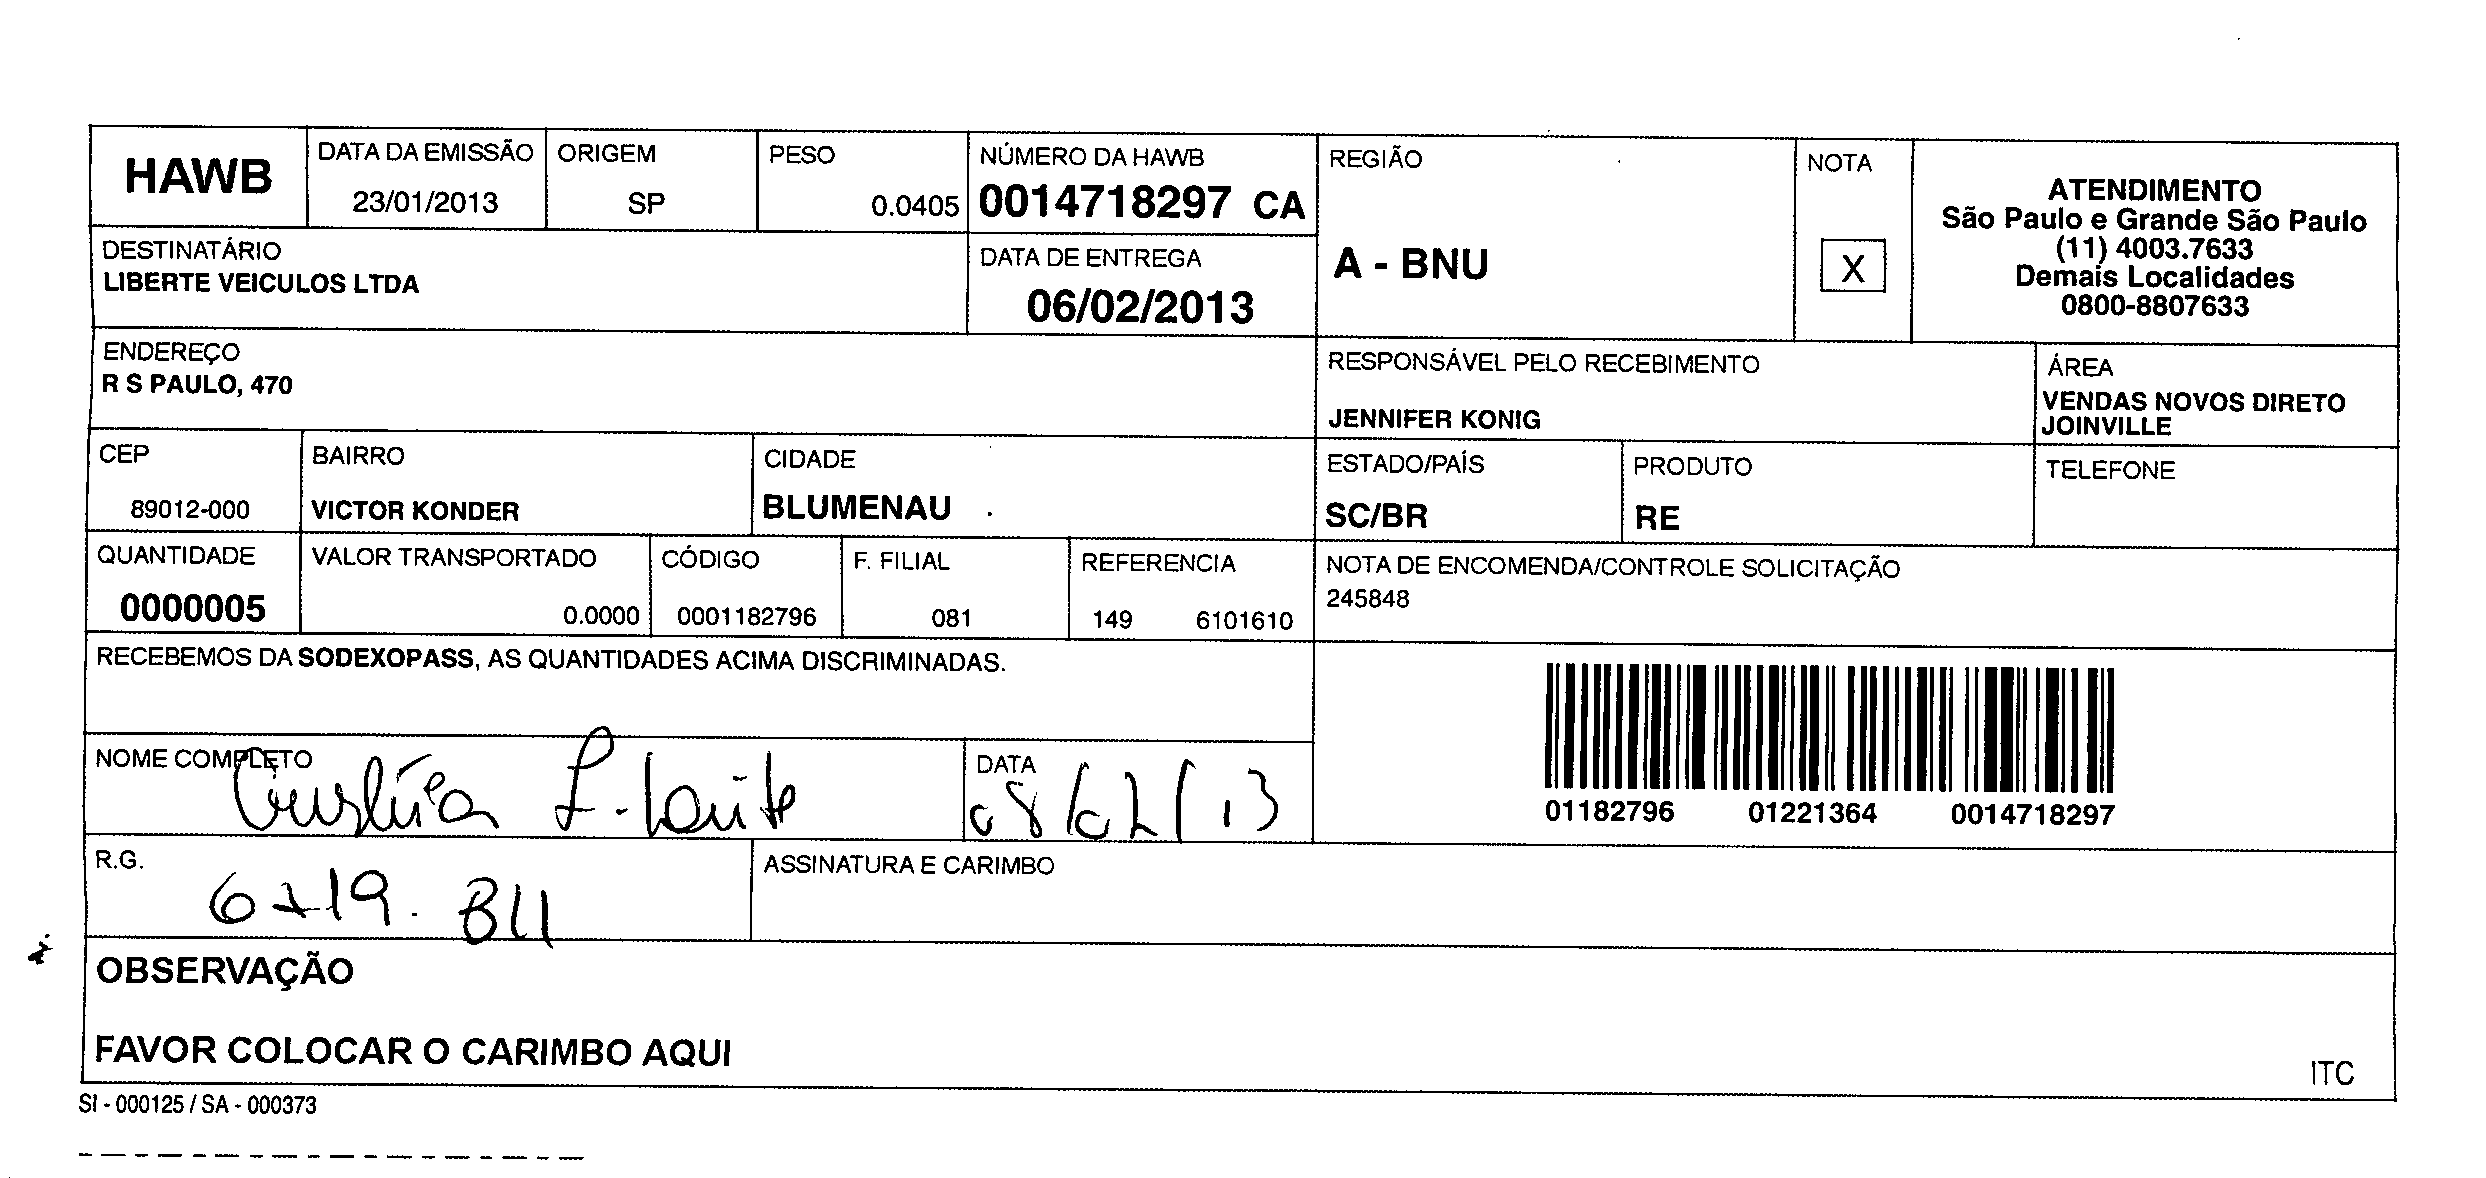 HAWB
DATA DA EMISSÃO
23/01/2013
ORIGEM
SP
PESO
0.0405
NÚMERO DA HAWB
0014718297 CA
REGIÃO
A - BNU
NOTA
X
ATENDIMENTO
São Paulo e Grande São Paulo
(11) 4003.7633
Demais Localidades
0800-8807633
DESTINATÁRIO
LIBERTE VEICULOS LTDA
DATA DE ENTREGA
06/02/2013
ENDEREÇO
R S PAULO, 470
RESPONSÁVEL PELO RECEBIMENTO
JENNIFER KONIG
ÁREA
VENDAS NOVOS DIRETO
JOINVILLE
CEP
89012-000
BAIRRO
VICTOR KONDER
CIDADE
BLUMENAU
ESTADO/PAÍS
SC/BR
PRODUTO
RE
TELEFONE
QUANTIDADE
0000005
VALOR TRANSPORTADO
0.0000
CÓDIGO
0001182796
F. FILIAL
081
REFERENCIA
149 6101610
NOTA DE ENCOMENDA/CONTROLE SOLICITAÇÃO
245848
RECEBEMOS DA SODEXOPASS, AS QUANTIDADES ACIMA DISCRIMINADAS.
01182796 01221364 0014718297
NOME COMPLETO
DATA
08/02/13
R.G.
ASSINATURA E CARIMBO
OBSERVAÇÃO
FAVOR COLOCAR O CARIMBO AQUI
ITC
SI - 000125 / SA - 000373